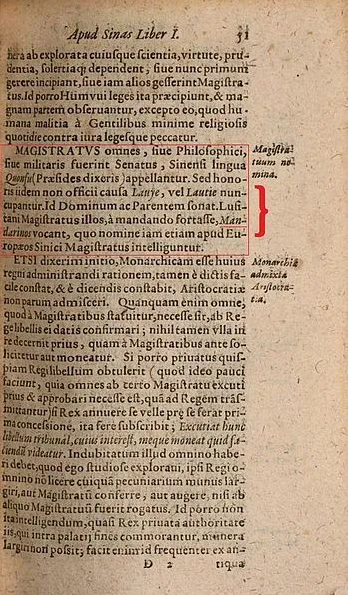 Apud Sinas Liber I. 51
hera ab explorata cuiusque scientia, virtute, pru-
dentia, solertiaq; dependent, siue nunc primùm
gerere incipiant, siue iam alios gesserint Magistra-
tus. Id porro Humvui leges ita præcipiunt, & ma-
gnam partem obseruantur, excepto eo, quod hu-
mana malitia à Gentilibus minime religiosis
quotidie contra iura legesque peccatur.
MAGISTRATVS omnes, siue Philosophici,
siue militaris fuerint Senatus, Sinensi lingua
Quonfu (Præsides dixeris) appellantur. Sed hono-
ris iidem non officii causa Lauye, vel Lautie nun-
cupantur. Id Dominum ac Parentem sonat. Lusi-
tani Magistratus illos, à mandando fortasse, Man-
darinos vocant, quo nomine iam etiam apud Eu-
ropæos Sinici Magistratus intelliguntur.
Magistra-
tuum no-
mina.
ETSI dixerim initio, Monarchicam esse huius
regni administrandi rationem, tamen è dictis fa-
cile constat, & è dicendis constabit, Aristocratiæ
non parum admisceri. Quanquam enim omne,
quod à Magistratibus statuitur, necesse sit, ab Re-
ge libellis ei datis confirmari; nihil tamen vlla in
re decernit prius, quam à Magistratibus ante so-
licitetur aut moneatur. Si porro priuatus quis-
piam Regi libellum obtulerit (quod ideo pauci
faciunt, quia omnes ab certo Magistratu excuti
prius & approbari necesse est, quâ ad Regem trâs-
mittantur) si Rex annuere se velle præ se ferat pri-
ma concessione, ita fere subscribit; Excutiat hunc
libellum tribunal, cuius interest, meque moneat quid fa-
ciendũ videatur. Indubitatum illud omnino habe-
ri debet, quod ego studiose exploraui, ipsi Regi o-
mnino nô licere cuiquã pecuniarium munus lar-
giri, aut Magistratũ conferre, aut augere, nisi ab
aliquo Magistratu fuerit rogatus. Id porro non
ita intelligendum, quasi Rex priuata authoritate
iis, qui intra palatij fines commorantur, munera
largiri non possit; facit enim id frequenter ex an-
Monarchiæ
admixta
Aristocra-
tia.
D 2 tiqua